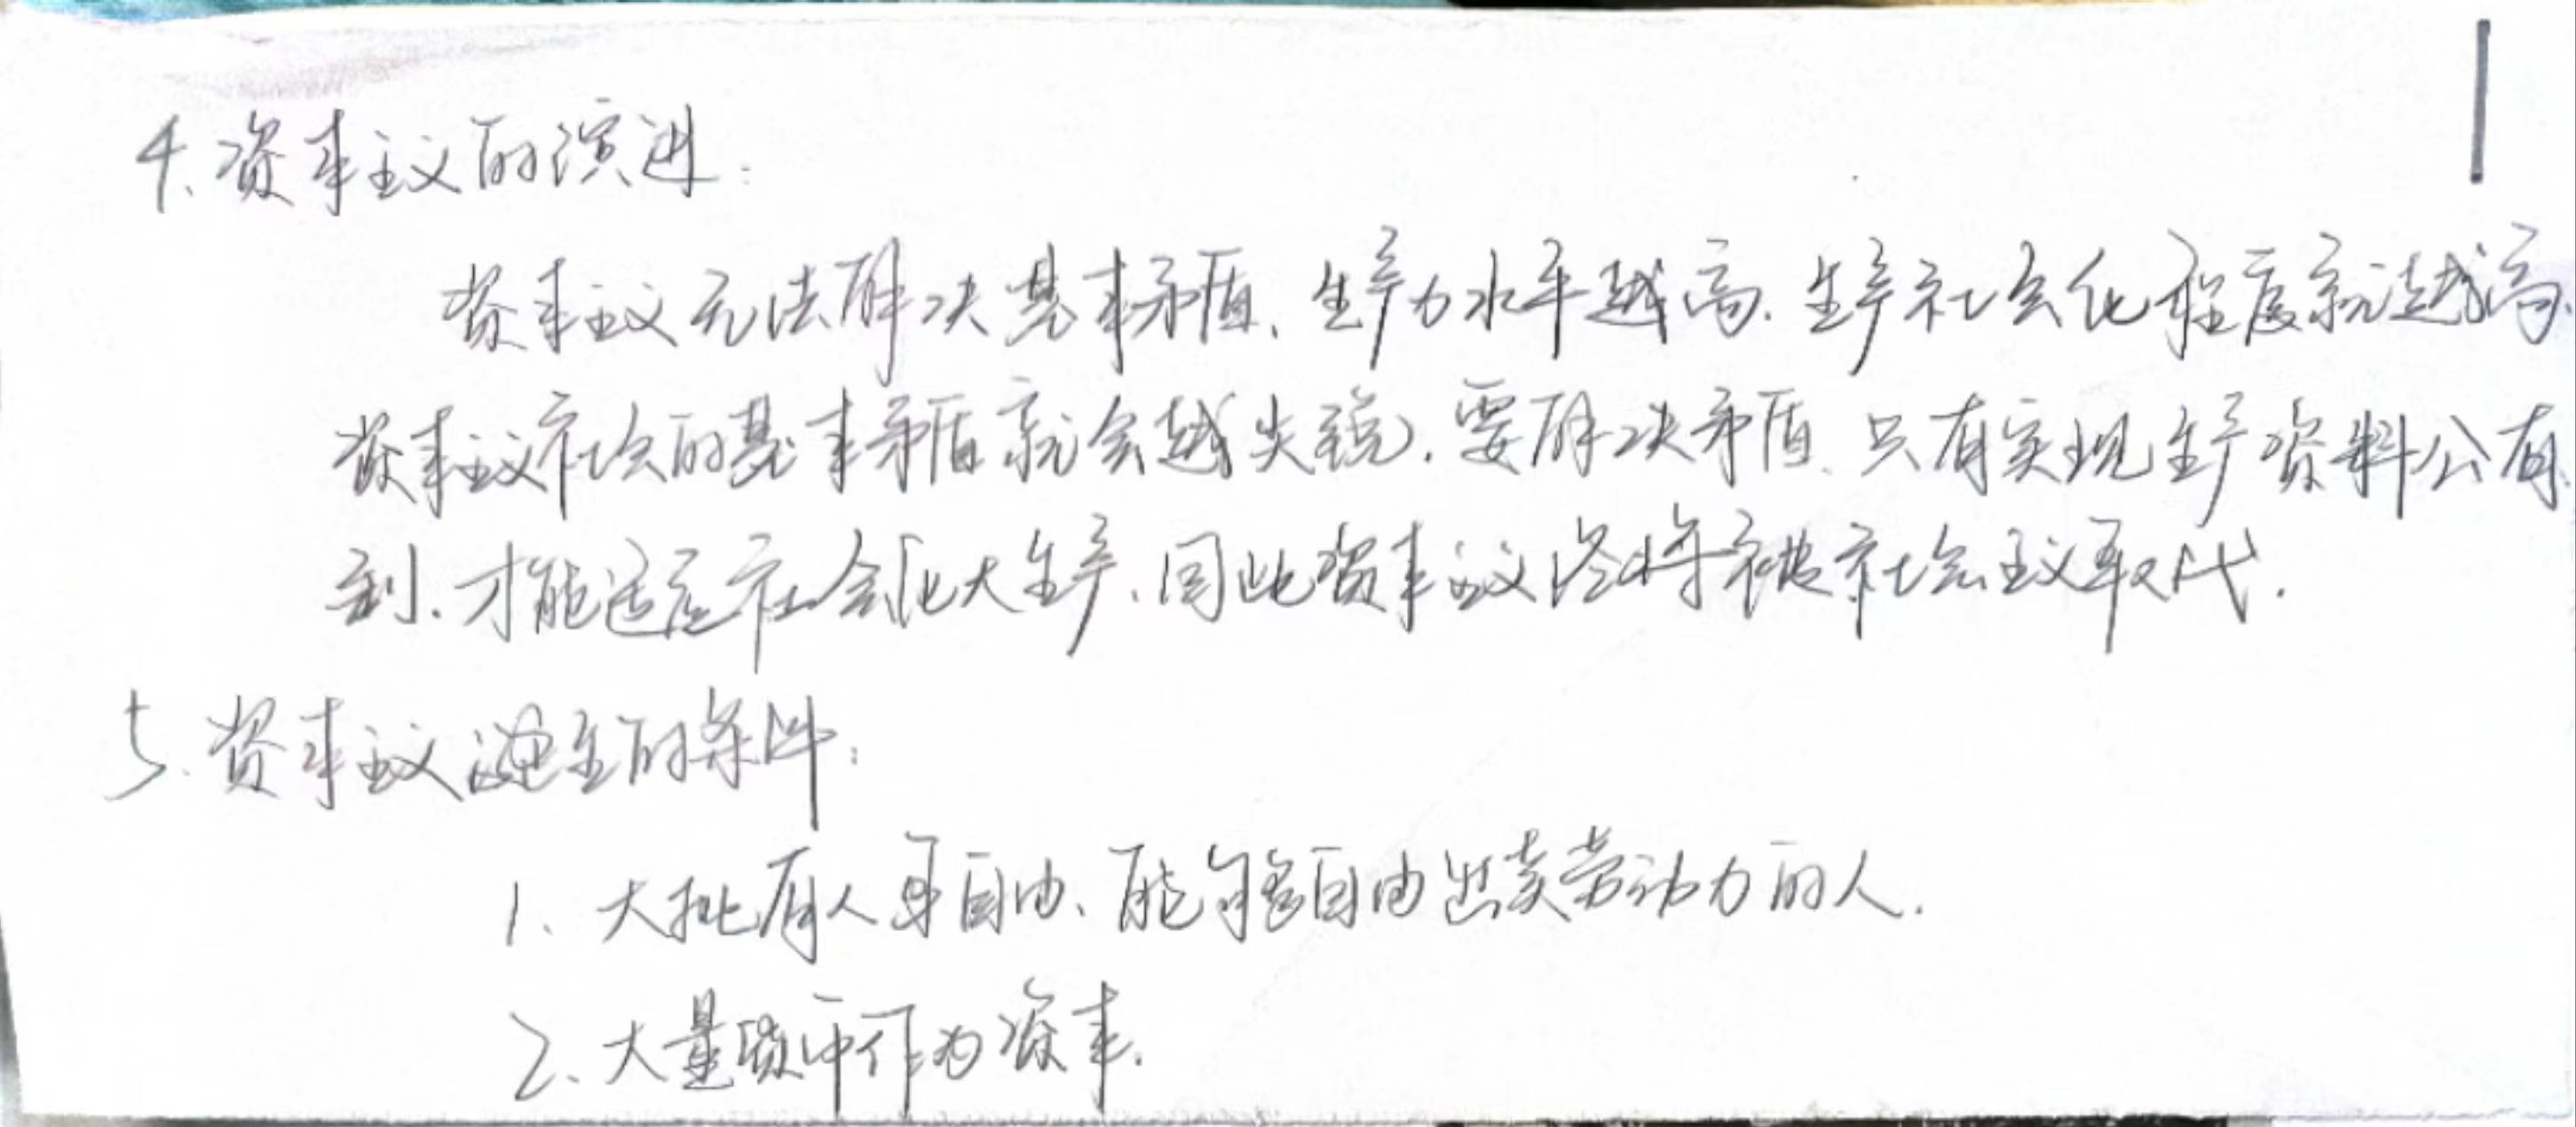 4、资本主义的演进：
资本主义无法解决基本矛盾、生产力水平越高、生产社会化程度就越高、
资本主义社会的基本矛盾就会越尖锐、要解决矛盾、只有实现生产资料公有
制、才能适应社会化大生产、因此资本主义终将被社会主义取代.
5、资本主义诞生的条件：
1、大批有人身自由、能够自由出卖劳动力的人.
2、大量货币作为资本.